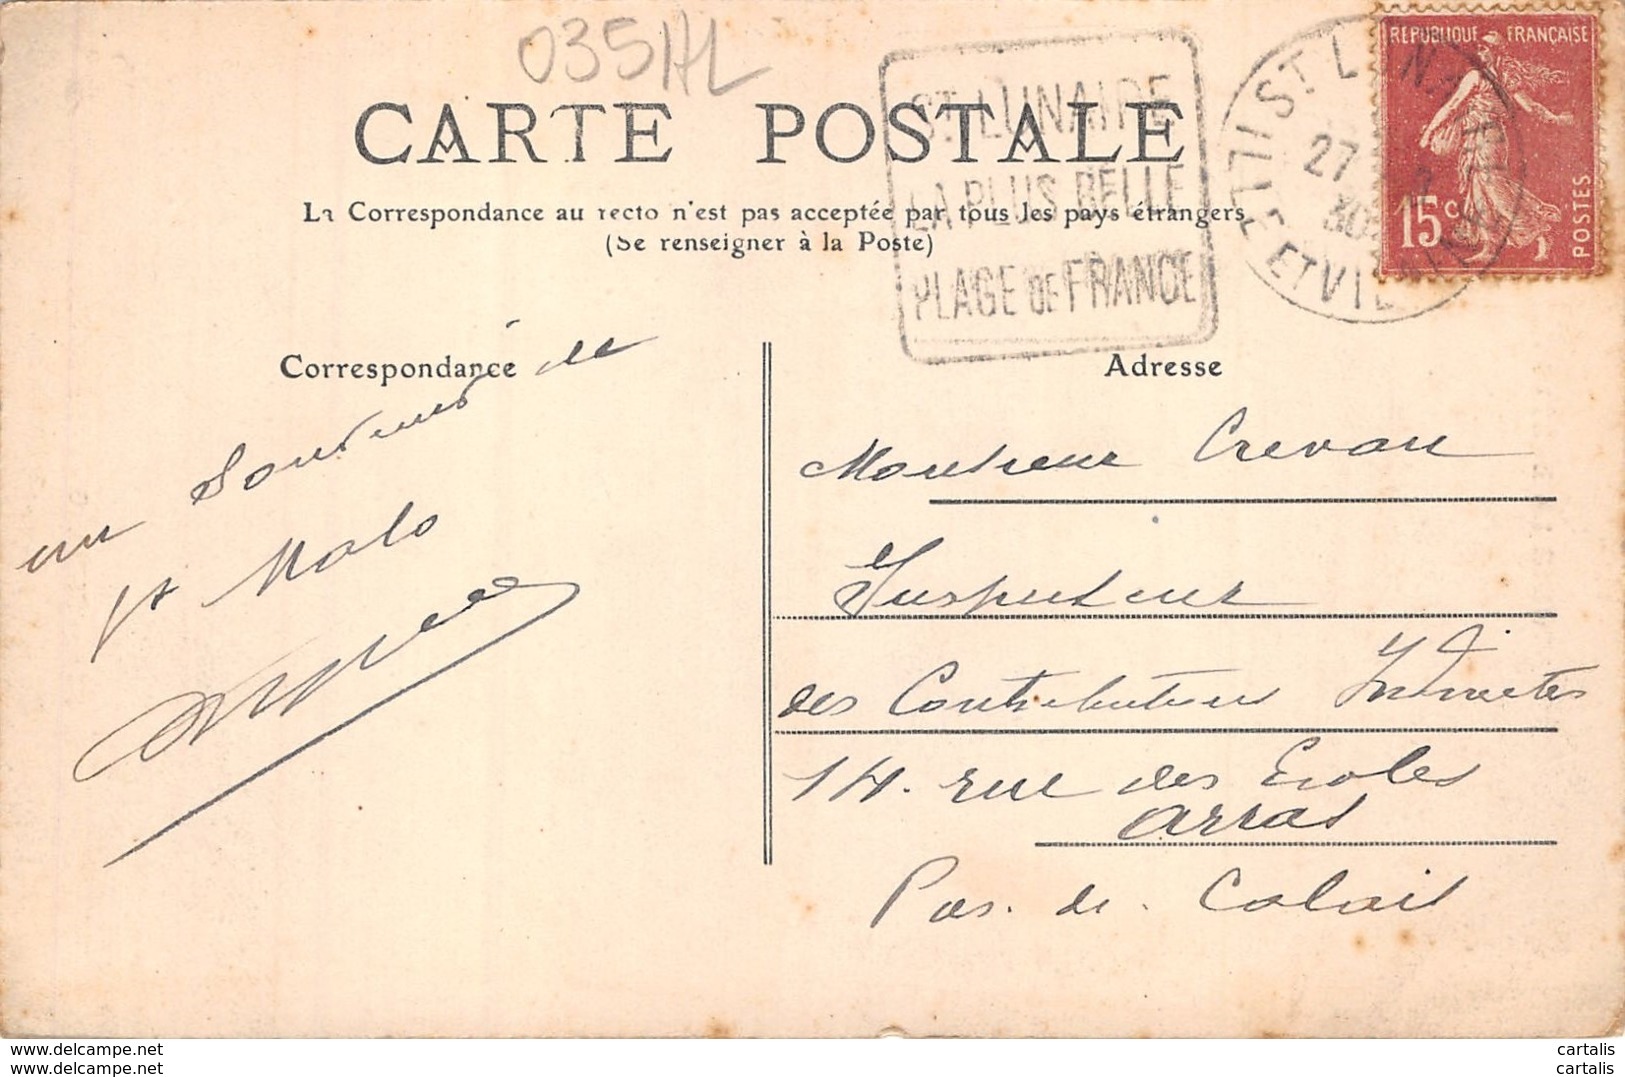 035HL
CARTE POSTALE
La Correspondance au recto n'est pas acceptée par tous les pays étrangers
(Se renseigner à la Poste)
ST LUNAIRE
LA PLUS BELLE
PLAGE DE FRANCE
ST LUNAIRE
27
30
ILLE ET VILAINE
REPUBLIQUE FRANÇAISE
15c
POSTES
Correspondance
un Souvenir de
St Malo
Adresse
Monsieur
Inspecteur
des Contributions Indirectes
14. rue des Ecoles
Arras
Pas. de. Calais
www.delcampe.net
www.delcampe.net
cartalis
cartalis